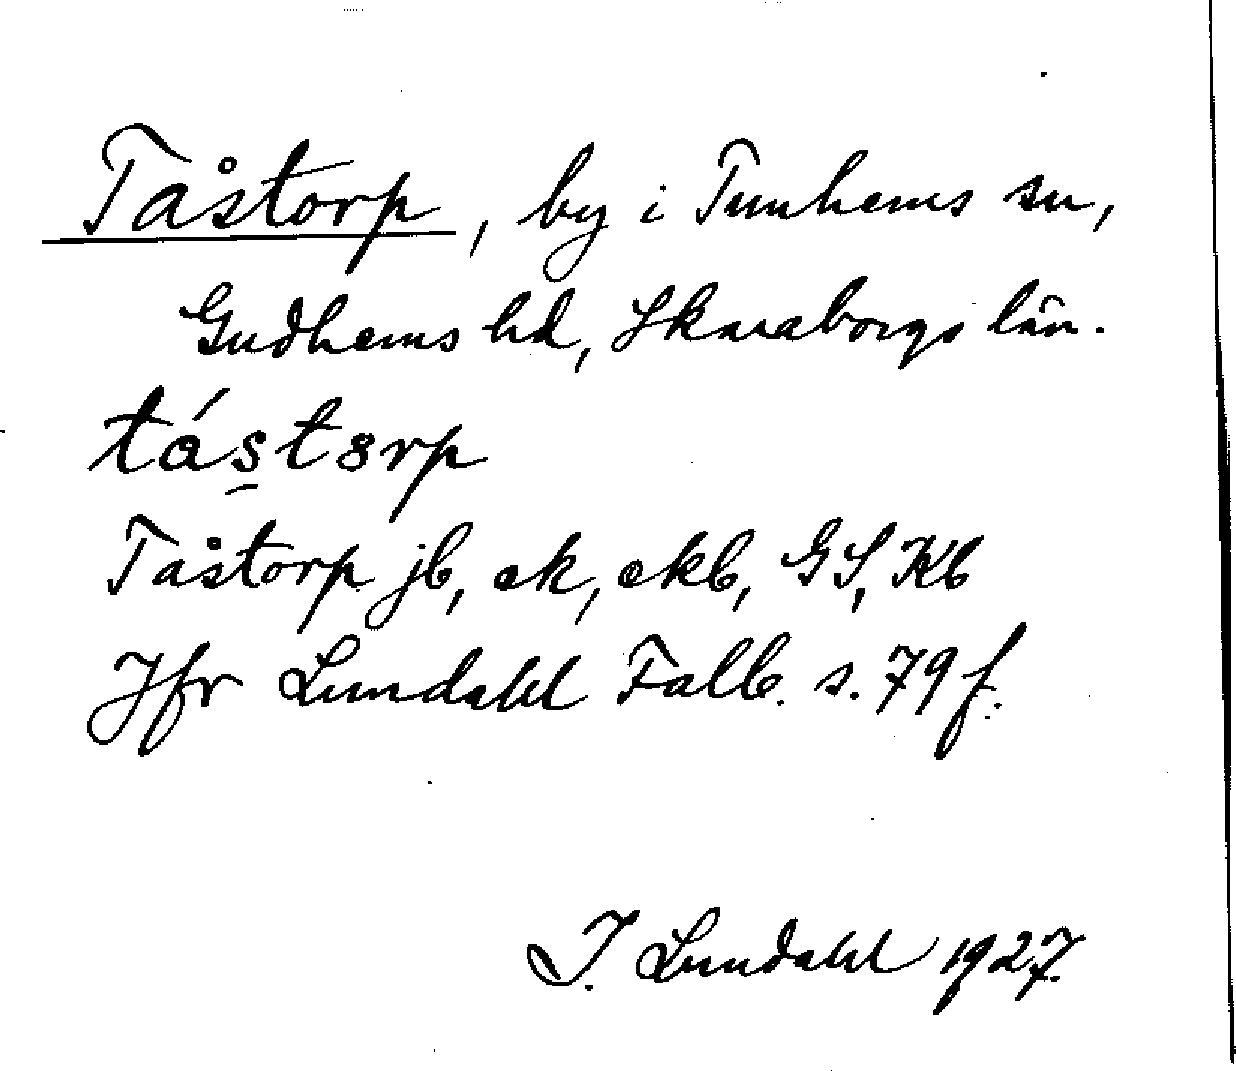 Tåstorp, by i Tunhems sn,
Gudhems hd, Skaraborgs län.
tástȣrp
Tåstorp jb, ek, ekb, GS, Kb
Jfr Lundahl Falb. s. 79 f.
I. Lundahl 1927.